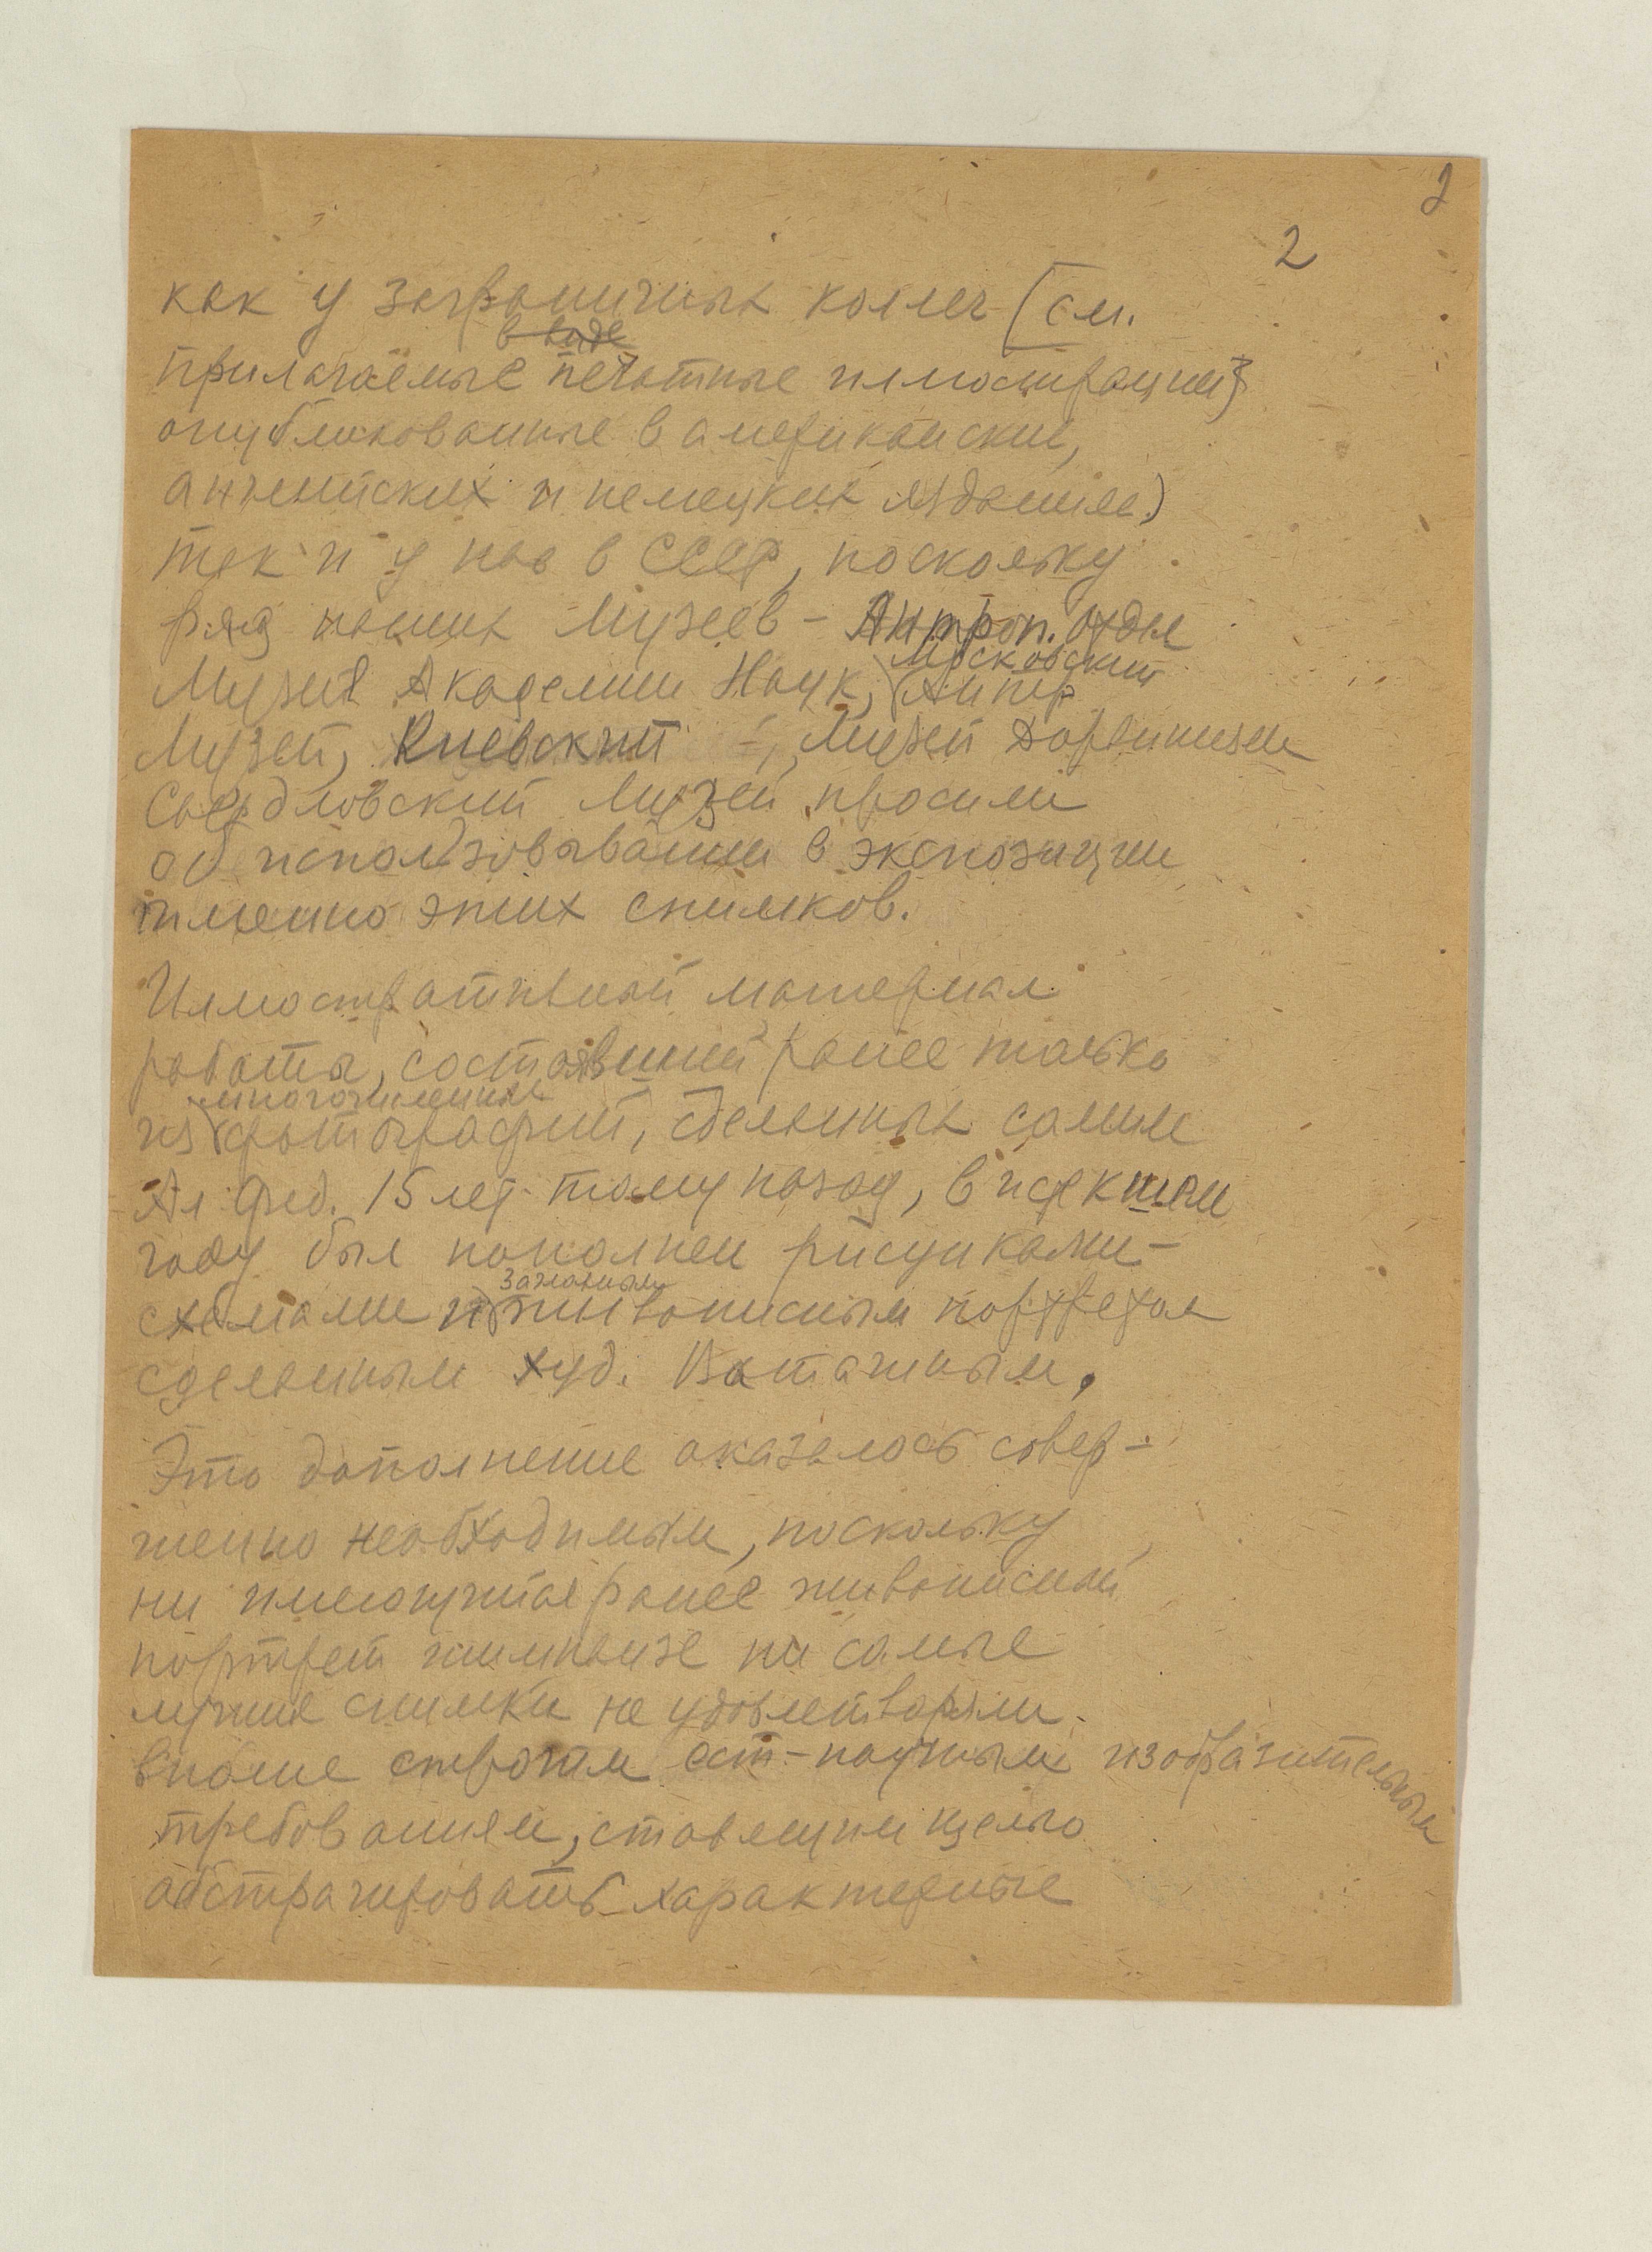 2
2
как у заграничных коллег (см.
в виде
прилагаемые печатные иллюстрации,
опубликованные в американских,
английских и немецких изданиях)
так и у нас в СССР, поскольку
ряд наших Музеев – Антроп. отдел
Московский
Музея Академии Наук, Антр
Музей, Киевский –"–, Музей Дарвинизма
Свердловский Музей просили
об использовывании в экспозиции
именно этих снимков.
Иллюстративный материал
работы, состоявший ранее только
многочисленных
из фотографий, сделанных самим
Ал Фед. 15 лет тому назад, в истекшем
году был пополнен рисунками-
заказным
схемами и живописным портретом
сделанным худ. Ватагиным.
Это дополнение оказалось совер-
шенно необходимым, поскольку
ни имеющийся ранее живописный
портрет шимпанзе ни самые
лучшие снимки не удовлетворяли
вполне строгим ест-научным изобразительным
требованиям, ставящим целью
абстрагировать характерные